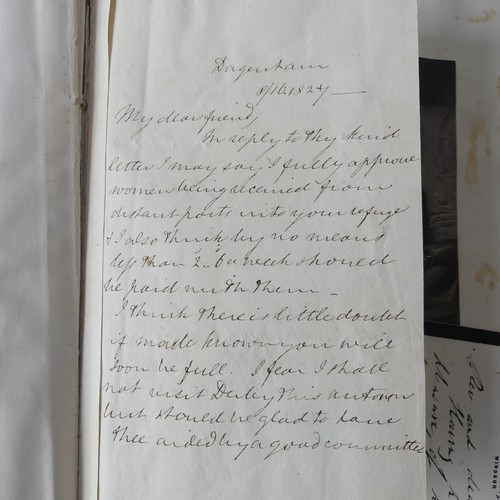 Dagenham
8/16.1827
My dear friend,
In reply to thy kind
letter I may say I fully approve
women being received from
distant parts into your refuge
& I also think by no means
less than 2..6 a week should
be paid with them -
I think there is little doubt
if made known you will
soon be full. I fear I shall
not visit Derby this autumn
but should be glad to have
thee aided by a good committee
WINDSOR